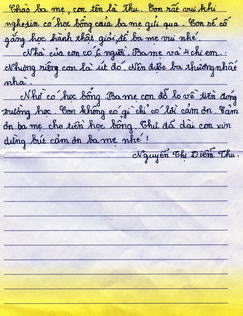 Chào ba mẹ, con tên là Thu. Con rất vui khi
nghe tin có học bổng của ba mẹ gửi qua. Con sẽ cố
gắng học hành thật giỏi để ba mẹ vui nhé.
Nhà của con có 6 người. Ba mẹ và 4 chị em.
Nhưng riêng con là út đó. Nên được ba thương nhất
nhà.
Nhờ có học bổng Ba mẹ con đỡ lo về tiền đóng
trường học. Con không có gì chỉ có lời cảm ơn. Cảm
ơn ba mẹ cho tiền học bổng. Thư đã dài con xin
dừng bút cảm ơn ba mẹ nhé!
Nguyễn Thị Diễm Thu.